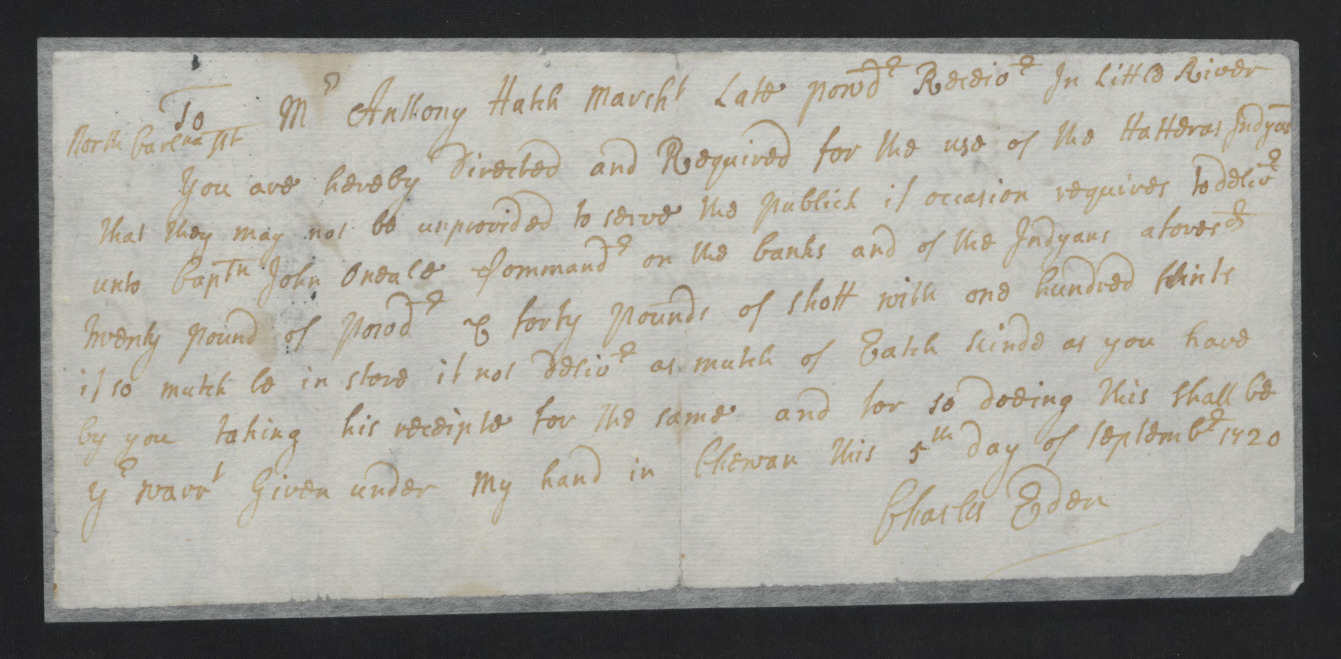 To Mr Anthony Hatch Marcht Late powdr Receivr In Little River
North Carolina Sst
You are hereby Directed and Required for the use of the Hatteras Indyans
that they may not be unprovided to serve the publick if occasion requires to delivr
unto Captn John Oneale Commandr on the banks and of the Indyans aforesd
twenty pound of powdr & forty pounds of shott with one hundred flints
if so mutch be in store if not delivr as mutch of Eatch kinde as you have
by you taking his receipte for the same and for so doeing this shall be
yr warrt Given under my hand in Chowan this 5th day of Septembr 1720
Charles Eden